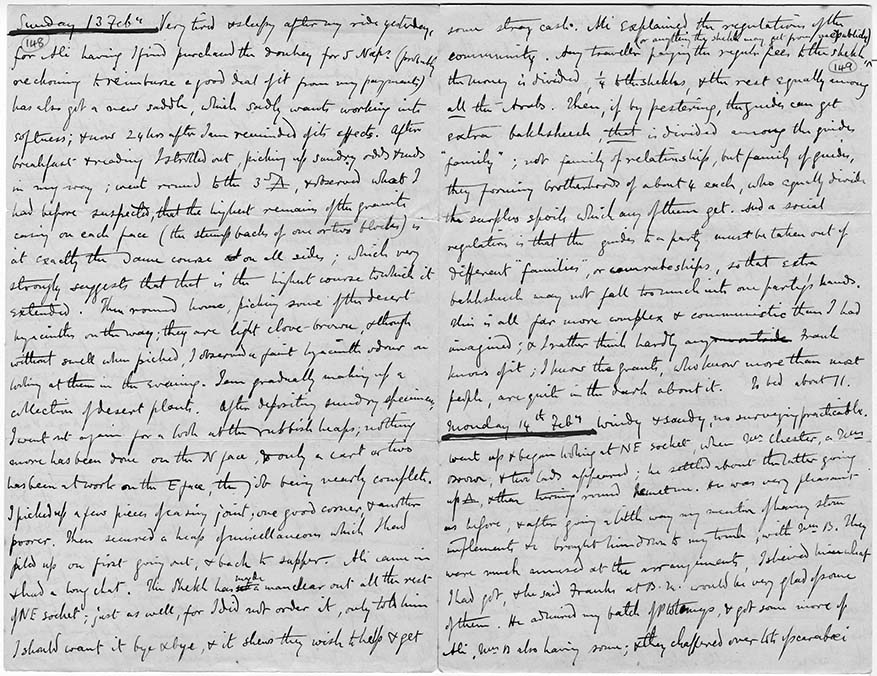 Sunday 13 Feby Very tired & sleepy after my ride yesterday,
148
for Ali having I find purchased the donkey for 5 Naps (probably
reckoning to reimburse a good deal of it from my payments)
has also got a new saddle, which sadly wants working into
softness; & now 24 hrs after I am reminded of its effects. After
breakfast & reading I strolled out, picking up sundry odds & ends
in my way; went round to the 3rd △, & observed what I
had before suspected, that the highest remains of the granite
casing on each face (the stumps backs of one or two blocks) is
at exactly the same course on all sides; which very
strongly suggests that that is the highest course to which it
extended. Then round home, picking some of the desert
hyacinths on the way; they are light clove-brown, & though
without smell when picked I observed a faint hyacinth odour on
looking at them in the evening. I am gradually making up a
collection of desert plants. After depositing sundry specimens
I went out again for a look at the rubbish heaps; nothing
more has been done on the N face, & only a cart or two
has been at work on the E face, the job being nearly complete.
I picked up a few pieces of casing joint, one good corner, & another
poorer. Then secured a heap of miscellaneous which I had
piled up on first going out, & back to supper. Ali came in
& had a long chat. The Shekh has made a man clear out all the rest
of NE socket; just as well, for I did not order it, only told him
I should want it bye & bye, & it shews they wish to help & get
some stray cash. Ali explained the regulations of the
or anything the shekh may get from (publicly)
community. Any traveller paying the regular fees to the shekh
149
the money is divided, ¼ to the shekhs, & the rest equally among
all the Arabs. Then, if by pestering, the guides can get
extra bakhsheesh, that is divided among the guides
"family"; not family of relationship, but family of guides,
they forming brotherhoods of about 4 each, who equally divide
the surplus spoils which any of them get. And a social
regulation is that the guides to a party must be taken out of
different "families", or comradeships, so that extra
bakhsheesh may not fall too much into one party's hands.
This is all far more complex & communistic than I had
imagined; & I rather think hardly any outside Frank
knows of it; I know the Grants, who know more than most
people, are quite in the dark about it. To bed about 11.
Monday 14th Feby Windy & sandy, no surveying practicable.
Went up & began looking at NE socket, when Mr Chester, a Mr
Brown, & two lads appeared; he settled about the latter going
up △, & then turning round met me. He was very pleasant
as before, & after going a little way my mention of having stone
implements & brought him down to my tomb, with Mr B. They
were much amused at the arrangements, I shewed him what
I had got, & he said Franks at B.M. would be very glad of some
of them. He admired my batch of Ptolemys, & got some more of
Ali, Mr B also having some; & they chaffered over lots of scarabaei